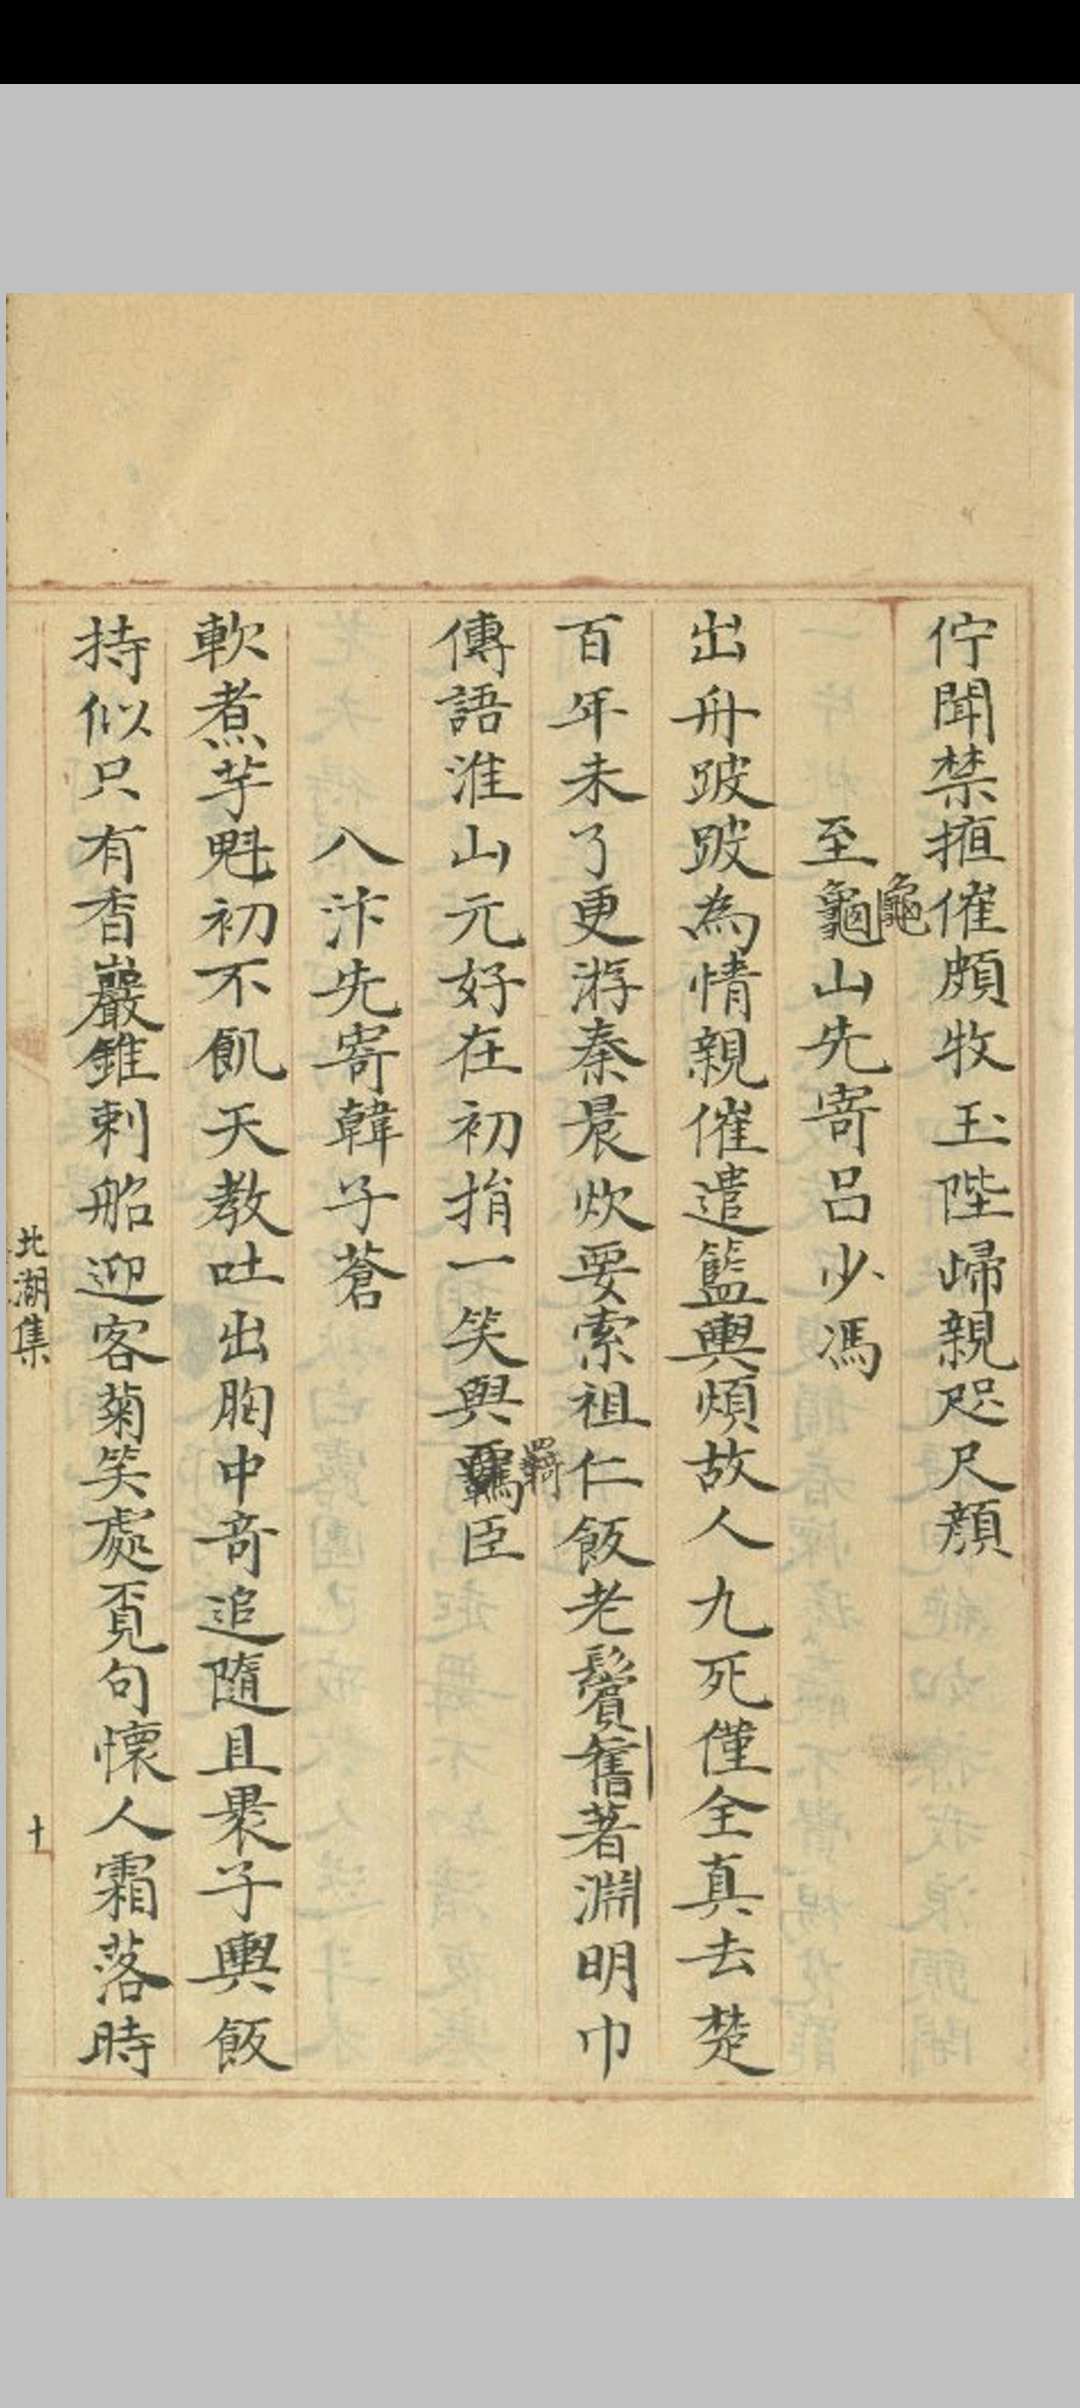 佇聞禁揎催頗牧玉陛歸親咫尺顏
至龜山先寄呂少馮
龜
出舟跛跛為情親催遣籃輿煩故人九死僅全真去楚
百年未了更游秦晨炊要索祖仁飯老鬢舊著淵明巾
傳語淮山元好在初捐一笑與羈臣
羇
入汴先寄韓子蒼
軟煮芋魁初不飢天教吐出胸中奇追隨且裹子輿飯
持似只有香嚴錐刺船迎客菊笑處覔句懷人霜落時
北湖集
十